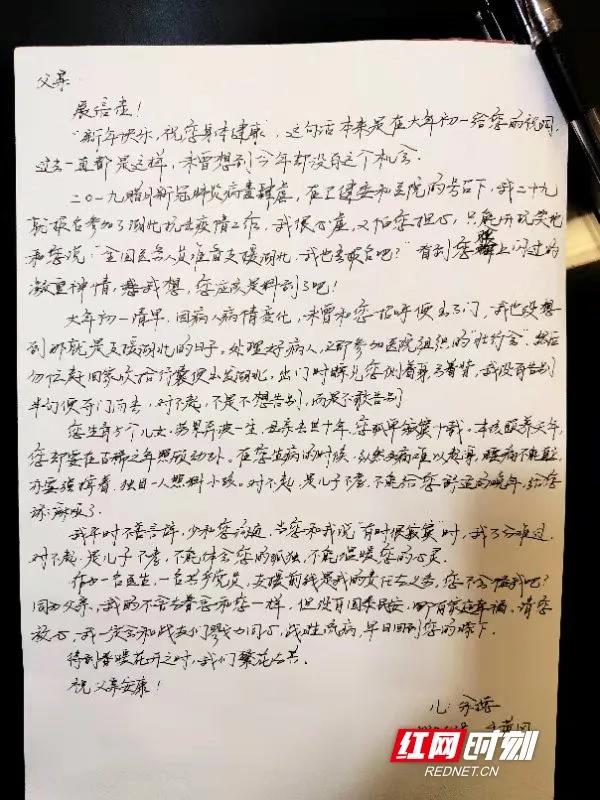 父亲
展信佳！
“新年快乐,祝您身体健康”，这句话本来是在大年初一给您的祝词,
过去一直都是这样，未曾想到今年却没有这个机会.
二〇一九腊月新冠肺炎病毒肆虐，在卫健委和医院的号召下，我二十九
就报名参加了湖北抗击疫情工作，我很心虚，又怕您担心，只能开玩笑地
和您说：“全国医务人员准备支援湖北，我也去报名吧？”看到您脸上闪过的
凝重神情，我想，您应该是料到了吧！
大年初一清早，因病人病情变化，未曾和您招呼便出了门，我也没想
到那就是支援湖北的日子。处理好病人，立即参加医院组织的“壮行会”，然后
匆匆赶回家收拾行囊便出发湖北，出门时瞬见您侧着身弓着背，我没有告别
半句便夺门而去，对不起，不是不想告别，而是不敢告别
您生育5个儿女，劳累奔波一生，丑养去世十年，您孤单寂寞十载。本该颐养天年，
您却要在古稀之年照顾。在您生病的时候，以起身，腰病不能直立
亦要强撑着，独自一人照料小孩。对不起，是儿子不孝，不能给您舒适的晚年，给您
添麻烦了
我平时不善言辞，少和您谈逅，当您和我说“有时很寂寞”时，我万分难过.
对不起，是儿子不孝，不能体会您的孤独，不能温暖您的心灵
作为一名医生，一名共产党员，支援前线是我的责任与义务，您不会怪我吧？
同为父亲，我的不舍与眷恋和您一样，但没有国泰民安，哪有家庭幸福。请您
放心，我一定会和战友们勠力同心，战胜疫病，早日回到您的膝下.
待到春暖花开之时，我们繁花与共
祝父亲安康！
儿：
红网时刻
REDNET.CN